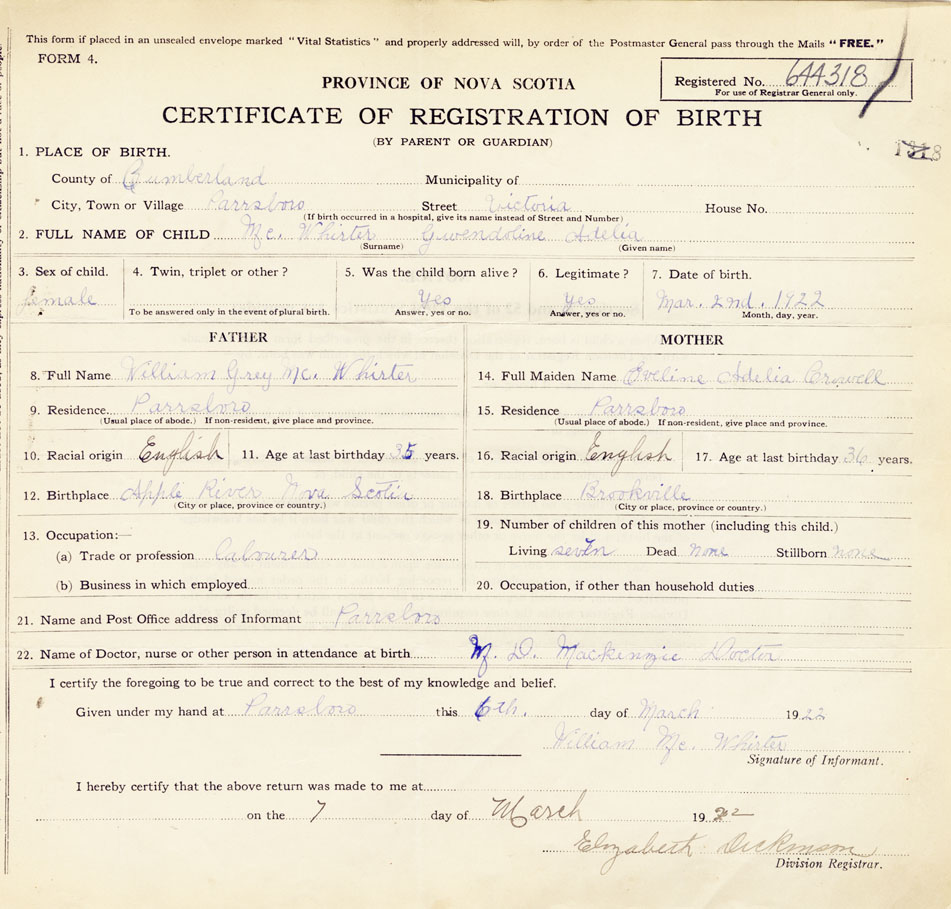 This form if placed in an unsealed envelope marked "Vital Statistics" and properly addressed will, by order of the Postmaster General pass through the Mails "FREE."
FORM 4.
PROVINCE OF NOVA SCOTIA
Registered No. 644318
For use of Registrar General only.
CERTIFICATE OF REGISTRATION OF BIRTH
(BY PARENT OR GUARDIAN)
1. PLACE OF BIRTH.
County of Cumberland Municipality of
City, Town or Village Parrsboro Street Victoria House No.
(If birth occurred in a hospital, give its name instead of Street and Number)
2. FULL NAME OF CHILD Mc. Whirter Gwendoline Adelia
(Surname) (Given name)
3. Sex of child. 4. Twin, triplet or other? 5. Was the child born alive? 6. Legitimate? 7. Date of birth.
female Yes Yes Mar. 2nd. 1922
To be answered only in the event of plural birth. Answer, yes or no. Answer, yes or no. Month, day, year.
FATHER MOTHER
8. Full Name William Grey Mc. Whirter 14. Full Maiden Name Eveline Adelia Crowell
9. Residence Parrsboro 15. Residence Parrsboro
(Usual place of abode.) If non-resident, give place and province. (Usual place of abode.) If non-resident, give place and province.
10. Racial origin English 11. Age at last birthday 35 years. 16. Racial origin English 17. Age at last birthday 36 years.
12. Birthplace Apple River Nova Scotia 18. Birthplace Brookville
(City or place, province or country.) (City or place, province or country.)
13. Occupation:— 19. Number of children of this mother (including this child.)
(a) Trade or profession Labourer Living seven Dead none Stillborn none
(b) Business in which employed 20. Occupation, if other than household duties
21. Name and Post Office address of Informant Parrsboro
22. Name of Doctor, nurse or other person in attendance at birth M. D. Mackenzie Doctor
I certify the foregoing to be true and correct to the best of my knowledge and belief.
Given under my hand at Parrsboro this 6th. day of March 1922
William Mc. Whirter
Signature of Informant.
I hereby certify that the above return was made to me at
on the 7 day of March 1922
Elizabeth Dickinson
Division Registrar.